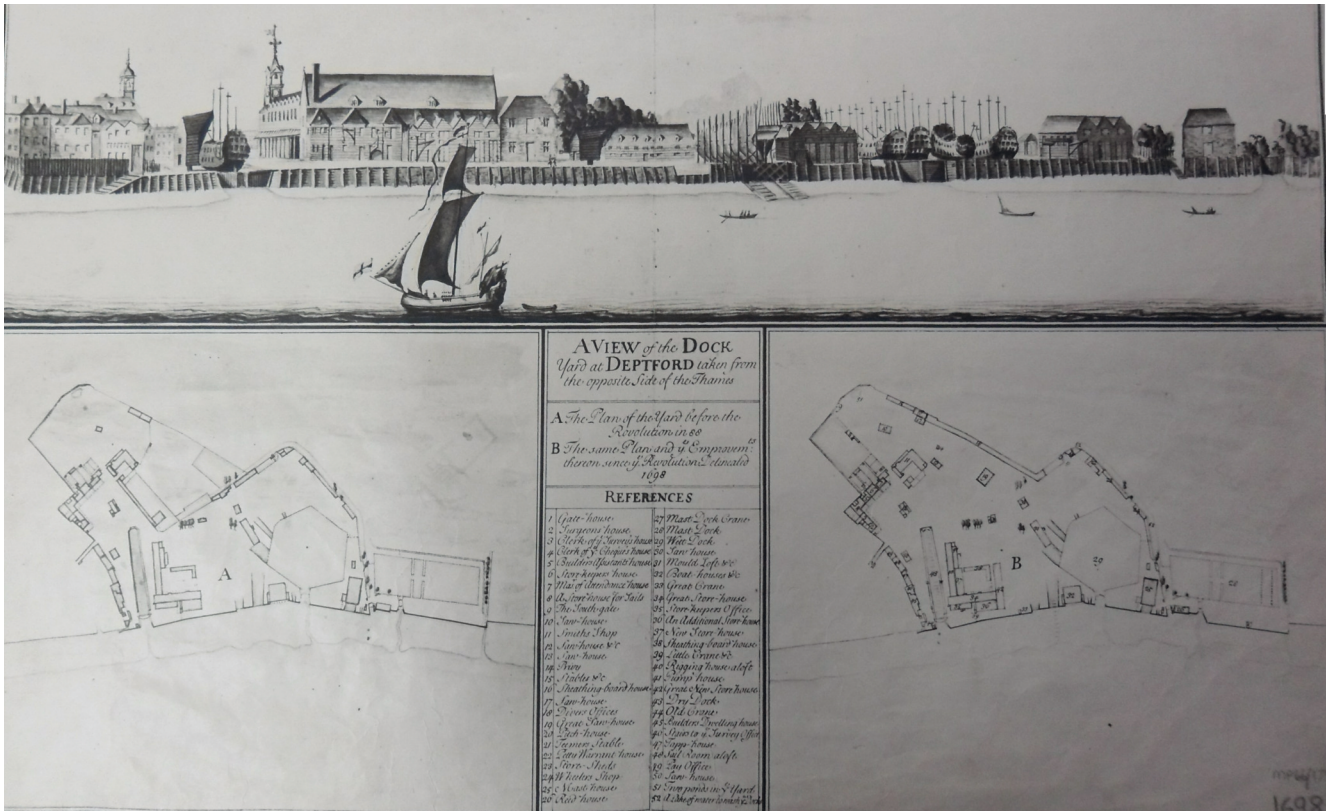 A VIEW of the DOCK
Yard at DEPTFORD taken from
the opposite Side of the Thames
A The Plan of the Yard before the
Revolution in 88
B The same Plan and ye Emprovem:ts
thereon sence ye Revolution Delineatd
1698
REFERENCES
1 Gate house
2 Surgeons house
3 Clerk of ye Surveys house
4 Clerk of ye Cheques house
5 Builders Assistants house
6 Store-keepers house
7 Mas.r of Attendance house
8 A Store house for Sails
9 The South-gate
10 Saw-house
11 Smiths Shop
12 Saw-house &c
13 Saw-house
14 Privy
15 Stables &c
16 Sheathing-board house
17 Saw-house
18 Divers Offices
19 Great Saw-house
20 Pitch-house
21 Teemers Stable
22 Petty Warrant house
23 Store-Sheds
24 Wheelers Shop
25 Mast house
26 Reed house
27 Mast Dock Crane
28 Mast Dock
29 Wett Dock
30 Saw house
31 Mould Loft &c
32 Boat-houses &c
33 Great Crane
34 Great Store-house
35 Store-keepers Office
36 An Additional Store house
37 New Store-house
38 Sheathing-board house
39 Little Crane &c
40 Rigging house aloft
41 house
42 Great New Store house
43 Dry Dock
44 Old Crane
45 Builders Dwelling house
46 Stairs to ye Survey Office
47 house
48 Sail Room aloft
49 Pay Office
50 Saw house
51 Two ponds in ye Yard
52 A Lake of water
A
B
1698